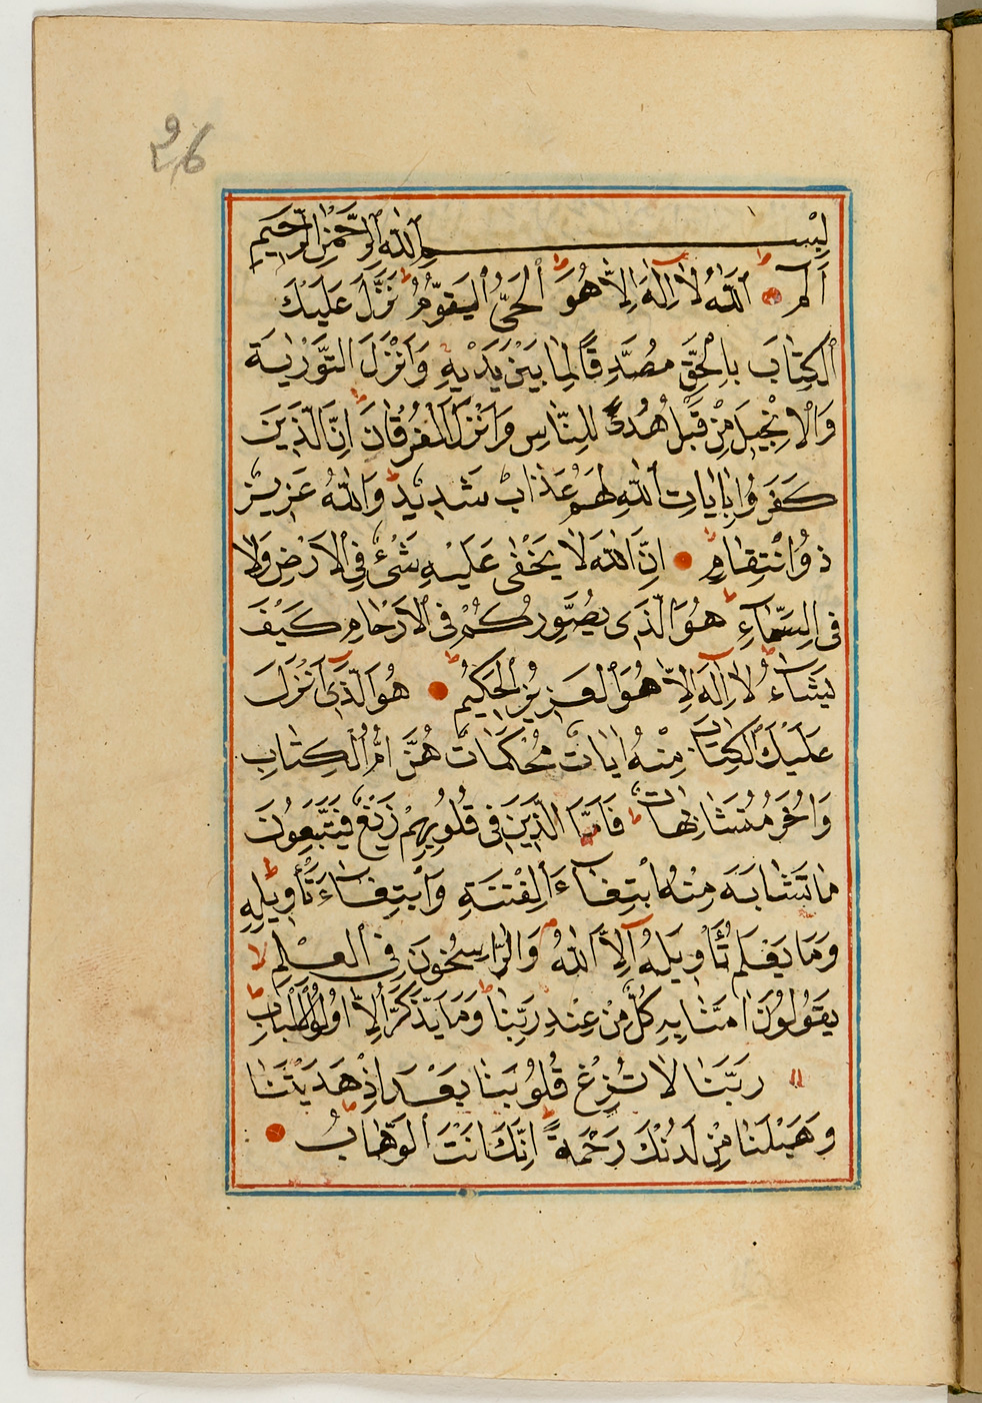 26
بِسْمِ اللهِ الرَّحْمٰنِ الرَّحِيمِ
الٓمٓ اَللهُ لَا اِلٰهَ اِلَّا هُوَ الْحَيُّ الْقَيُّومُ نَزَّلَ عَلَيْكَ
الْكِتَابَ بِالْحَقِّ مُصَدِّقًا لِمَا بَيْنَ يَدَيْهِ وَاَنْزَلَ التَّوْرٰيةَ
وَالْاِنْجِيلَ مِنْ قَبْلُ هُدًى لِلنَّاسِ وَاَنْزَلَ الْفُرْقَانَ اِنَّ الَّذِينَ
كَفَرُوا بِاٰيَاتِ اللهِ لَهُمْ عَذَابٌ شَدِيدٌ وَاللهُ عَزِيزٌ
ذُو انْتِقَامٍ اِنَّ اللهَ لَا يَخْفٰى عَلَيْهِ شَيْءٌ فِي الْاَرْضِ وَلَا
فِي السَّمَاءِ هُوَ الَّذِي يُصَوِّرُكُمْ فِي الْاَرْحَامِ كَيْفَ
يَشَاءُ لَا اِلٰهَ اِلَّا هُوَ الْعَزِيزُ الْحَكِيمُ هُوَ الَّذِي اَنْزَلَ
عَلَيْكَ الْكِتَابَ مِنْهُ اٰيَاتٌ مُحْكَمَاتٌ هُنَّ اُمُّ الْكِتَابِ
وَاُخَرُ مُتَشَابِهَاتٌ فَاَمَّا الَّذِينَ فِي قُلُوبِهِمْ زَيْغٌ فَيَتَّبِعُونَ
مَا تَشَابَهَ مِنْهُ ابْتِغَاءَ الْفِتْنَةِ وَابْتِغَاءَ تَأْوِيلِهِ
وَمَا يَعْلَمُ تَأْوِيلَهُ اِلَّا اللهُ وَالرَّاسِخُونَ فِي الْعِلْمِ
يَقُولُونَ اٰمَنَّا بِهِ كُلٌّ مِنْ عِنْدِ رَبِّنَا وَمَا يَذَّكَّرُ اِلَّا اُولُوا الْاَلْبَابِ
رَبَّنَا لَا تُزِغْ قُلُوبَنَا بَعْدَ اِذْ هَدَيْتَنَا
وَهَبْ لَنَا مِنْ لَدُنْكَ رَحْمَةً اِنَّكَ اَنْتَ الْوَهَّابُ